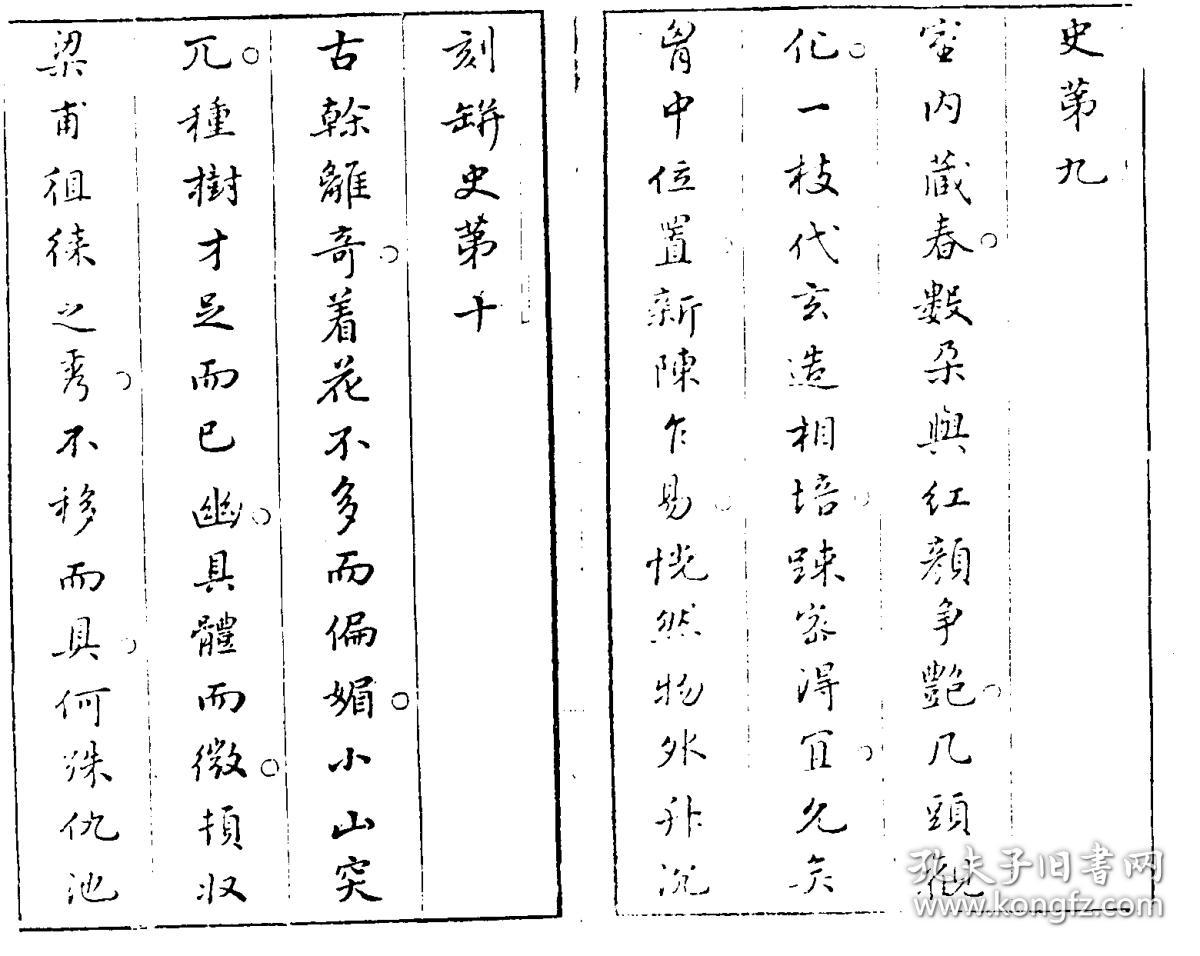 史第九
室内藏春數朶與紅顔争艷几頭觀
化一枝代玄造相培踈宻得冝允矣
胷中位置新陳乍易恍然物外升沉
刻缾史第十
古榦離奇着花不多而偏媚小山突
兀種樹才足而已幽具體而微損収
梁甫徂徠之秀不移而具何殊仇池
孔夫子旧书网
www.kongfz.com